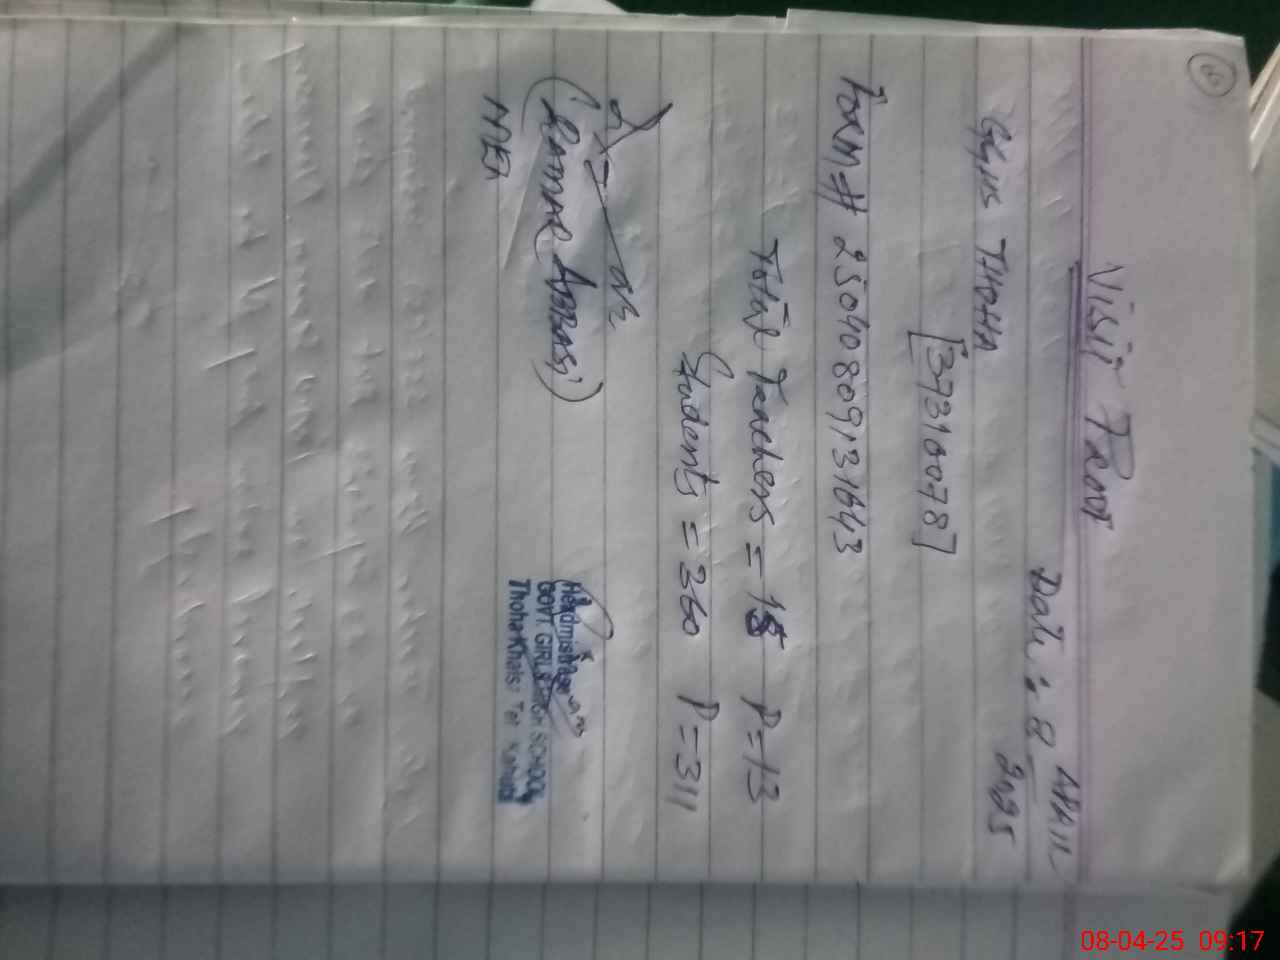 Visit Proof
Date: 8 April
2025
GGHS THOHA
[37310078]
Form# 25040809131643
Total Teachers = 15 P=13
Students = 360 P=311
(Qamar Abbasi)
MEA
Headmistress
GOVT. GIRLS HIGH SCHOOL
Thoha Khalsa Teh Kahuta
08-04-25 09:17